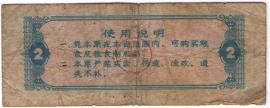 使用说明
2
2
一、凭本票在本
围内，可购买粮
食及粮食制品
二、本票严禁买卖，伪造，涂改，遗
失不补。